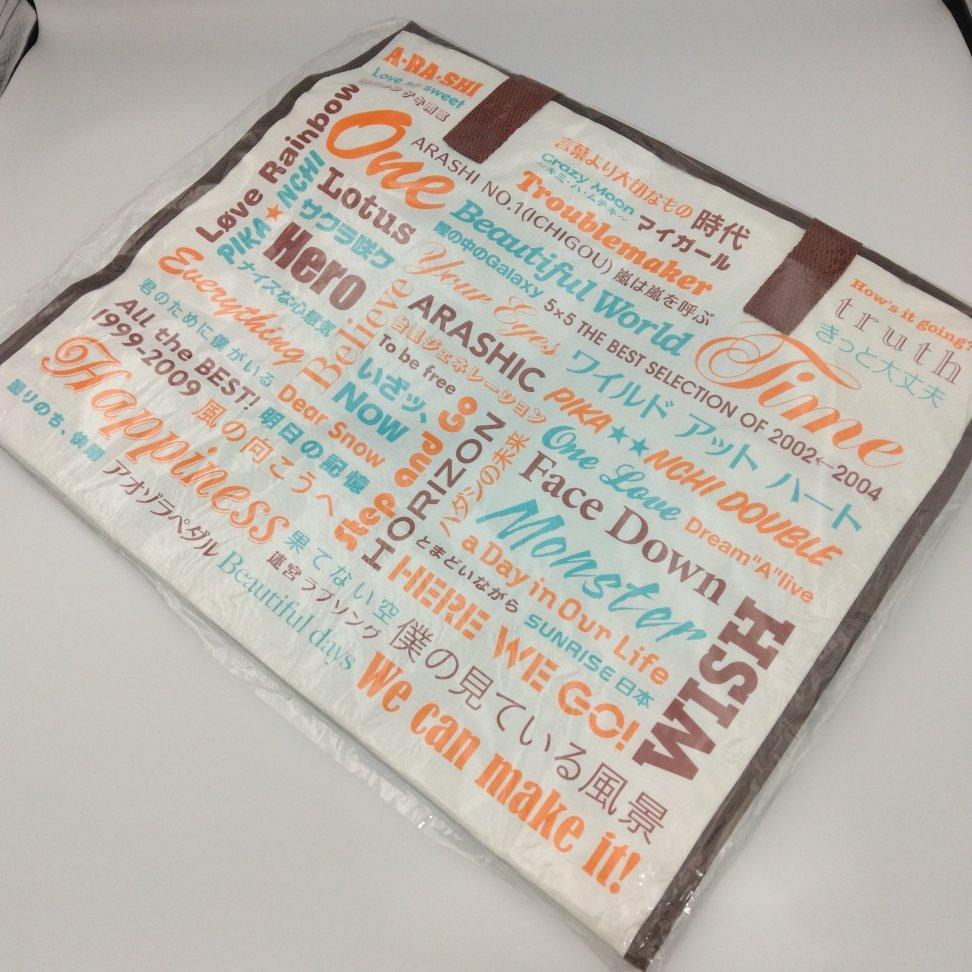 A・RA・SHI
Love so sweet
Løve Rainbow
PIKA★NCHI
One
ARASHI NO.1(ICHIGOU) 嵐は嵐を呼ぶ
Lotus
サクラ咲ケ
Hero
ナイスな心意気
Everything
君のために僕がいる
ALL the BEST!
1999-2009
Happiness
曇りのち、快晴
アオゾラペダル
Beautiful days
言葉より大切なもの
Crazy Moon
～キミ・ハ・ムテキ～
Troublemaker
時代
マイガール
Beautiful World
僕の中のGalaxy
5×5 THE BEST SELECTION OF 2002←2004
Your Eyes
Believe
ARASHIC
To be free
いざッ、
NOW
Dear Snow
明日の記憶
風の向こうへ
Step and Go
HORIZON
ハダシの未来
How's it going?
truth
きっと大丈夫
Time
ワイルド アット ハート
PIKA★★NCHI DOUBLE
One Love
Face Down
Dream"A"live
Monster
a Day in Our Life
とまどいながら
SUNRISE日本
HERE WE GO!
果てない空
迷宮ラブソング
僕の見ている風景
We can make it!
WISH